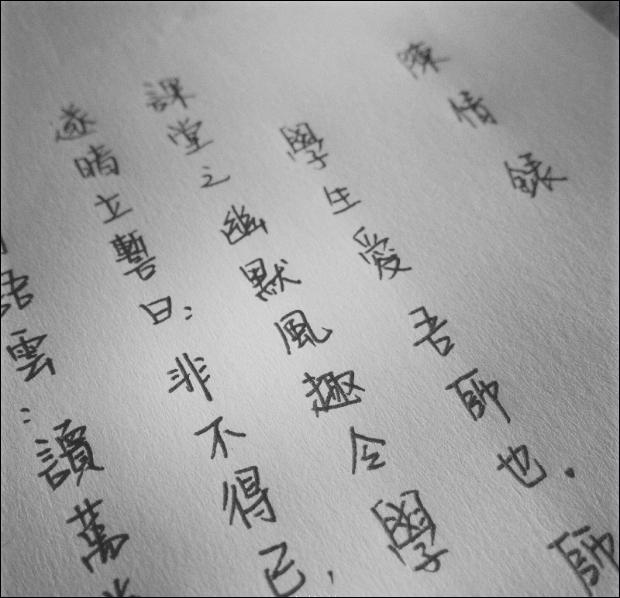 陳情錄
學生愛吾師也.師
課堂之幽默風趣令學
遂暗立誓曰:非不得已,
語雲:讀萬